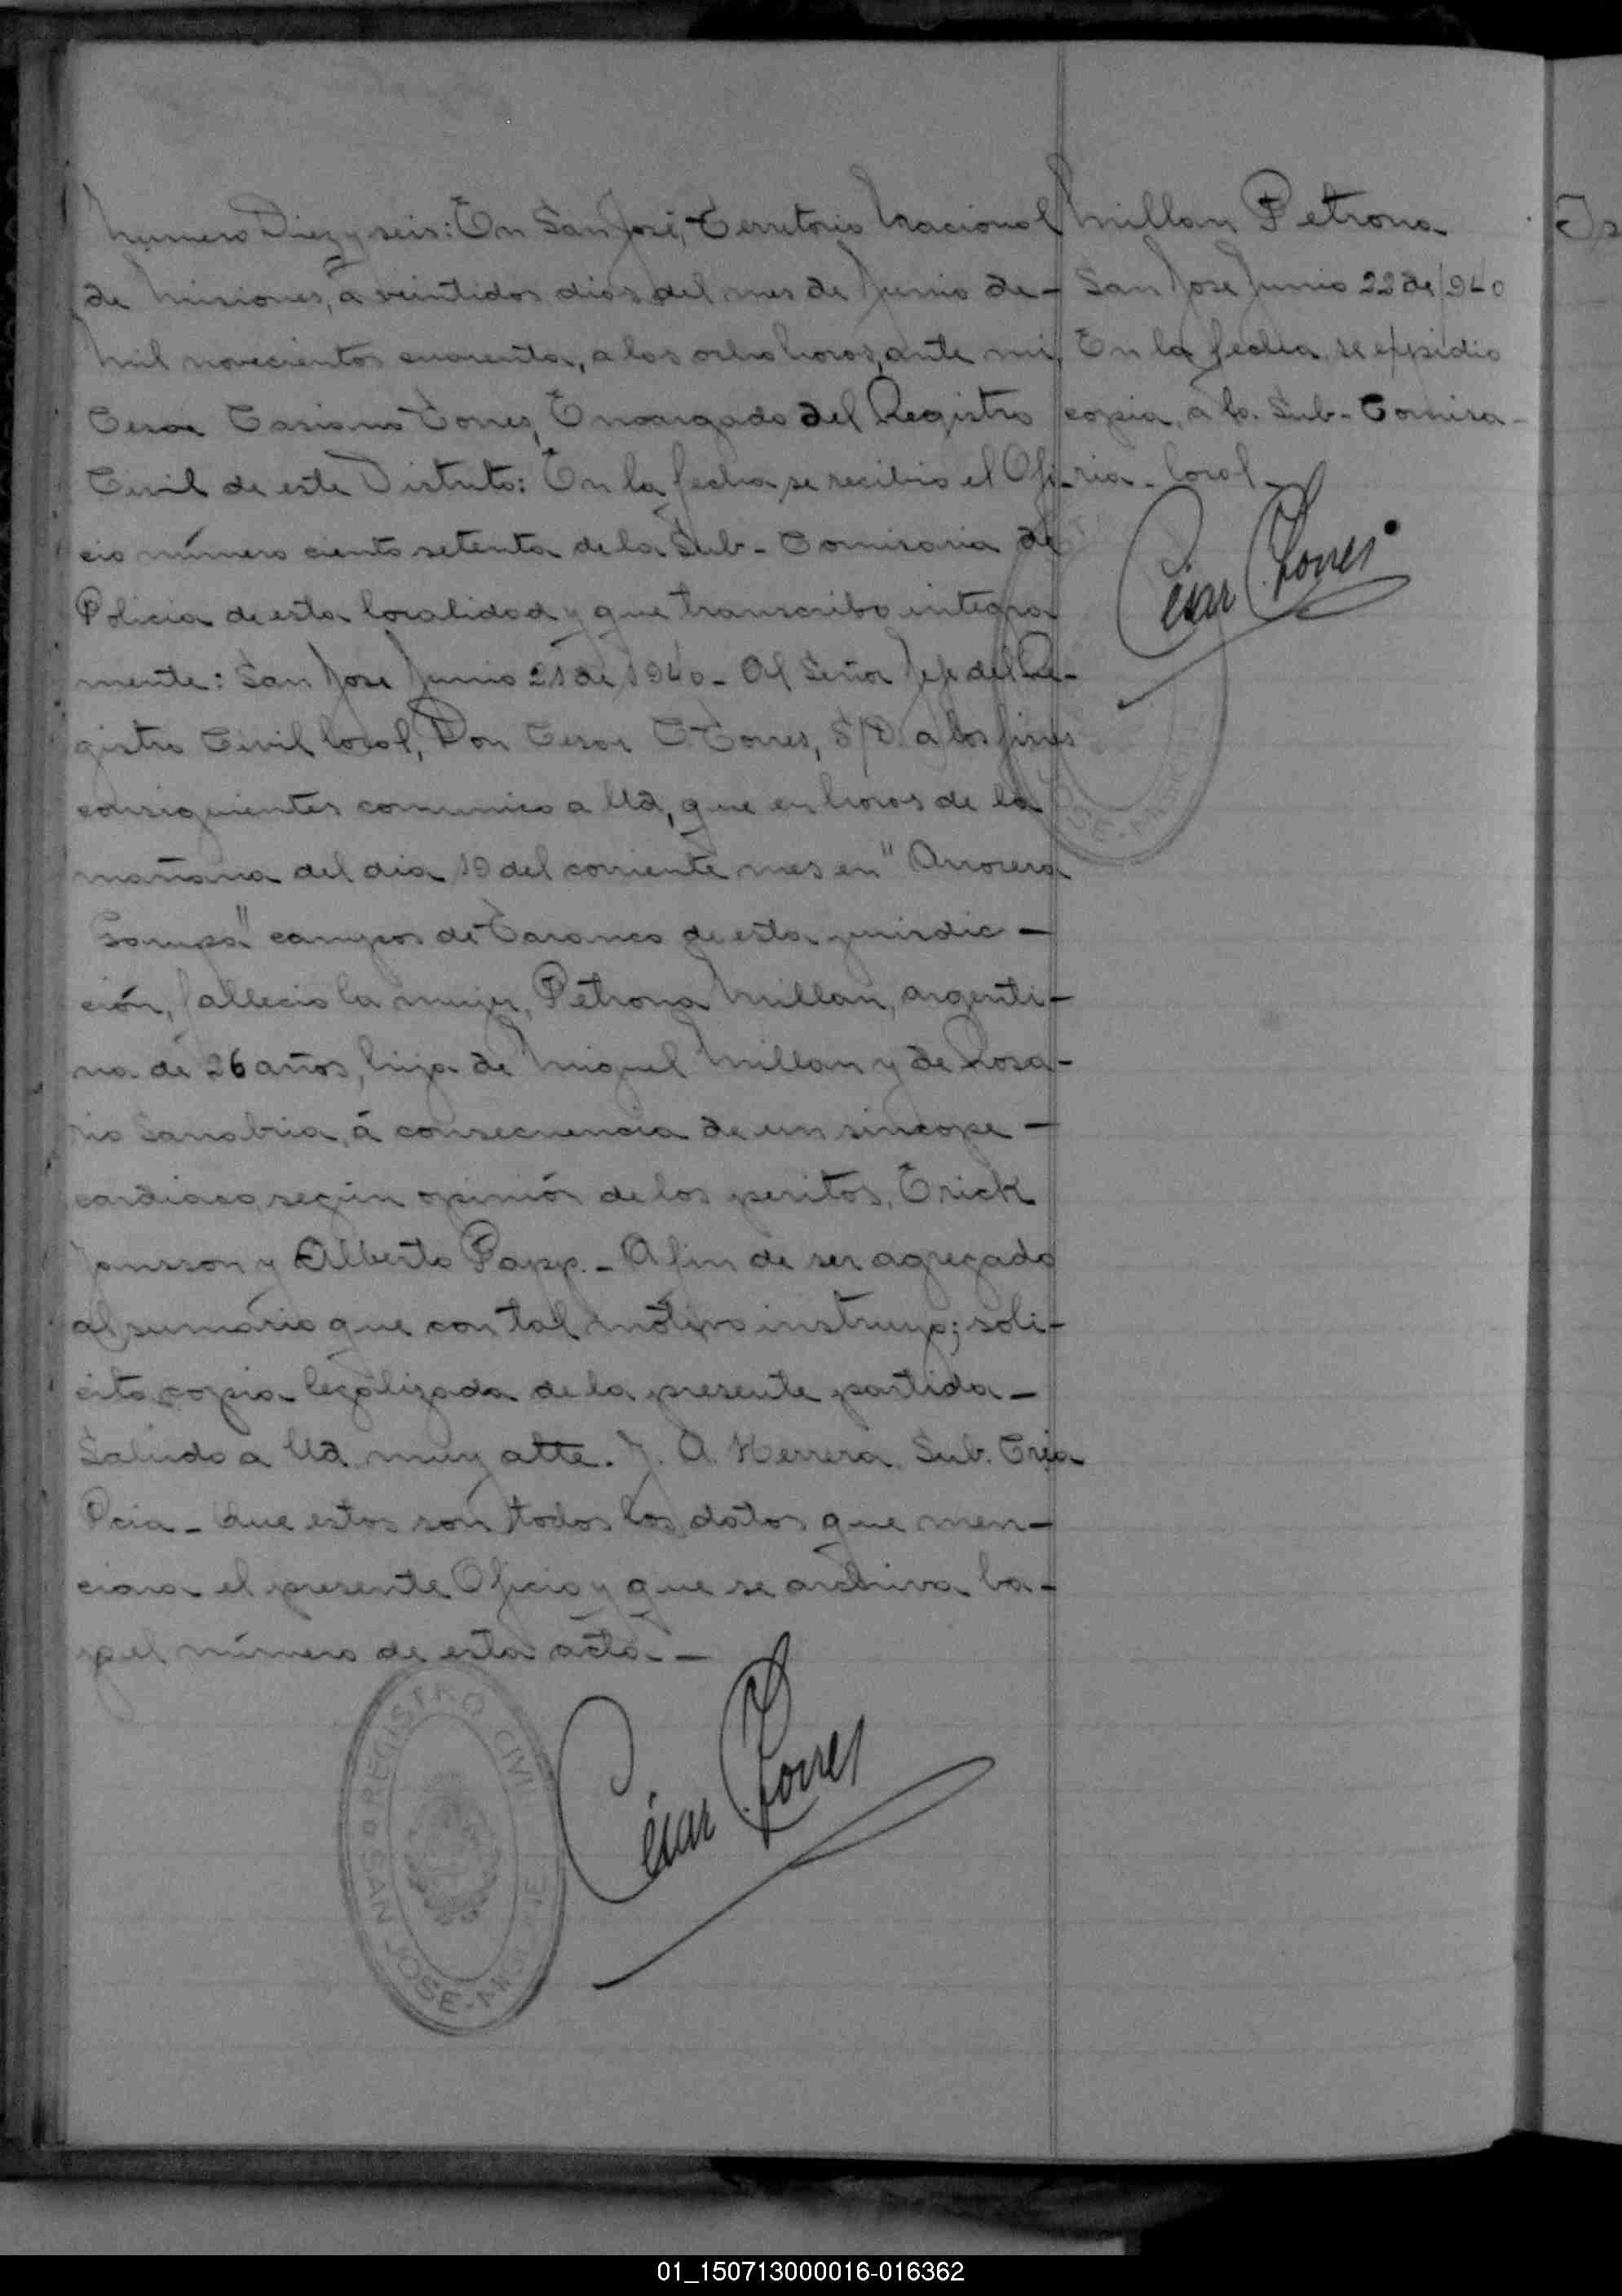 Numero Diez y seis: En San José, Territorio Nacional
de Misiones, a veintidos dias del mes de Junio de-
Mil novecientos cuarenta, a las ocho horas, ante mi,
Cesar Casiano Torres, Encargado del Registro
Civil de este Distrito: En la fecha se recibio el Ofi-
cio número ciento setenta de la Sub-Comisaria de
Policia de esta localidad y que transcribo integra
mente: San Jose Junio 21 de 1940- Al Señor Jefe del Re-
gistro Civil local, Don Cesar C. Torres, S/D. a los fines
consiguientes comunico a Ud, que en horas de la
mañana del dia 19 del corriente mes en "
campos de de esta jurisdic-
ción, fallecio la mujer, Petrona Millan, argenti-
na de 26 años, hija de Miguel Millan y de Rosa-
rio Sanabria, á consecuencia de un sincope-
cardiaco, según opinión de los peritos, Erick
Jansson y Alberto Papp.- A fin de ser agregado
al sumário que con tal motivo instruyo; soli-
cito copia legalizada de la presente partida-
Saludo a Ud. muy atte. J. A. Herrera. Sub.
Pcia- Que estos son todos los datos que men-
ciona el presente Oficio y que se archiva ba-
jo el número de esta acta.-
Millan Petrona
San Jose Junio 22 de 1940
En la fecha se expidio
copia, a la Sub-Comisa-
ria-local-
César Torres
César Torres
REGISTRO CIVIL
SAN JOSE-
OSE-
01_150713000016-016362